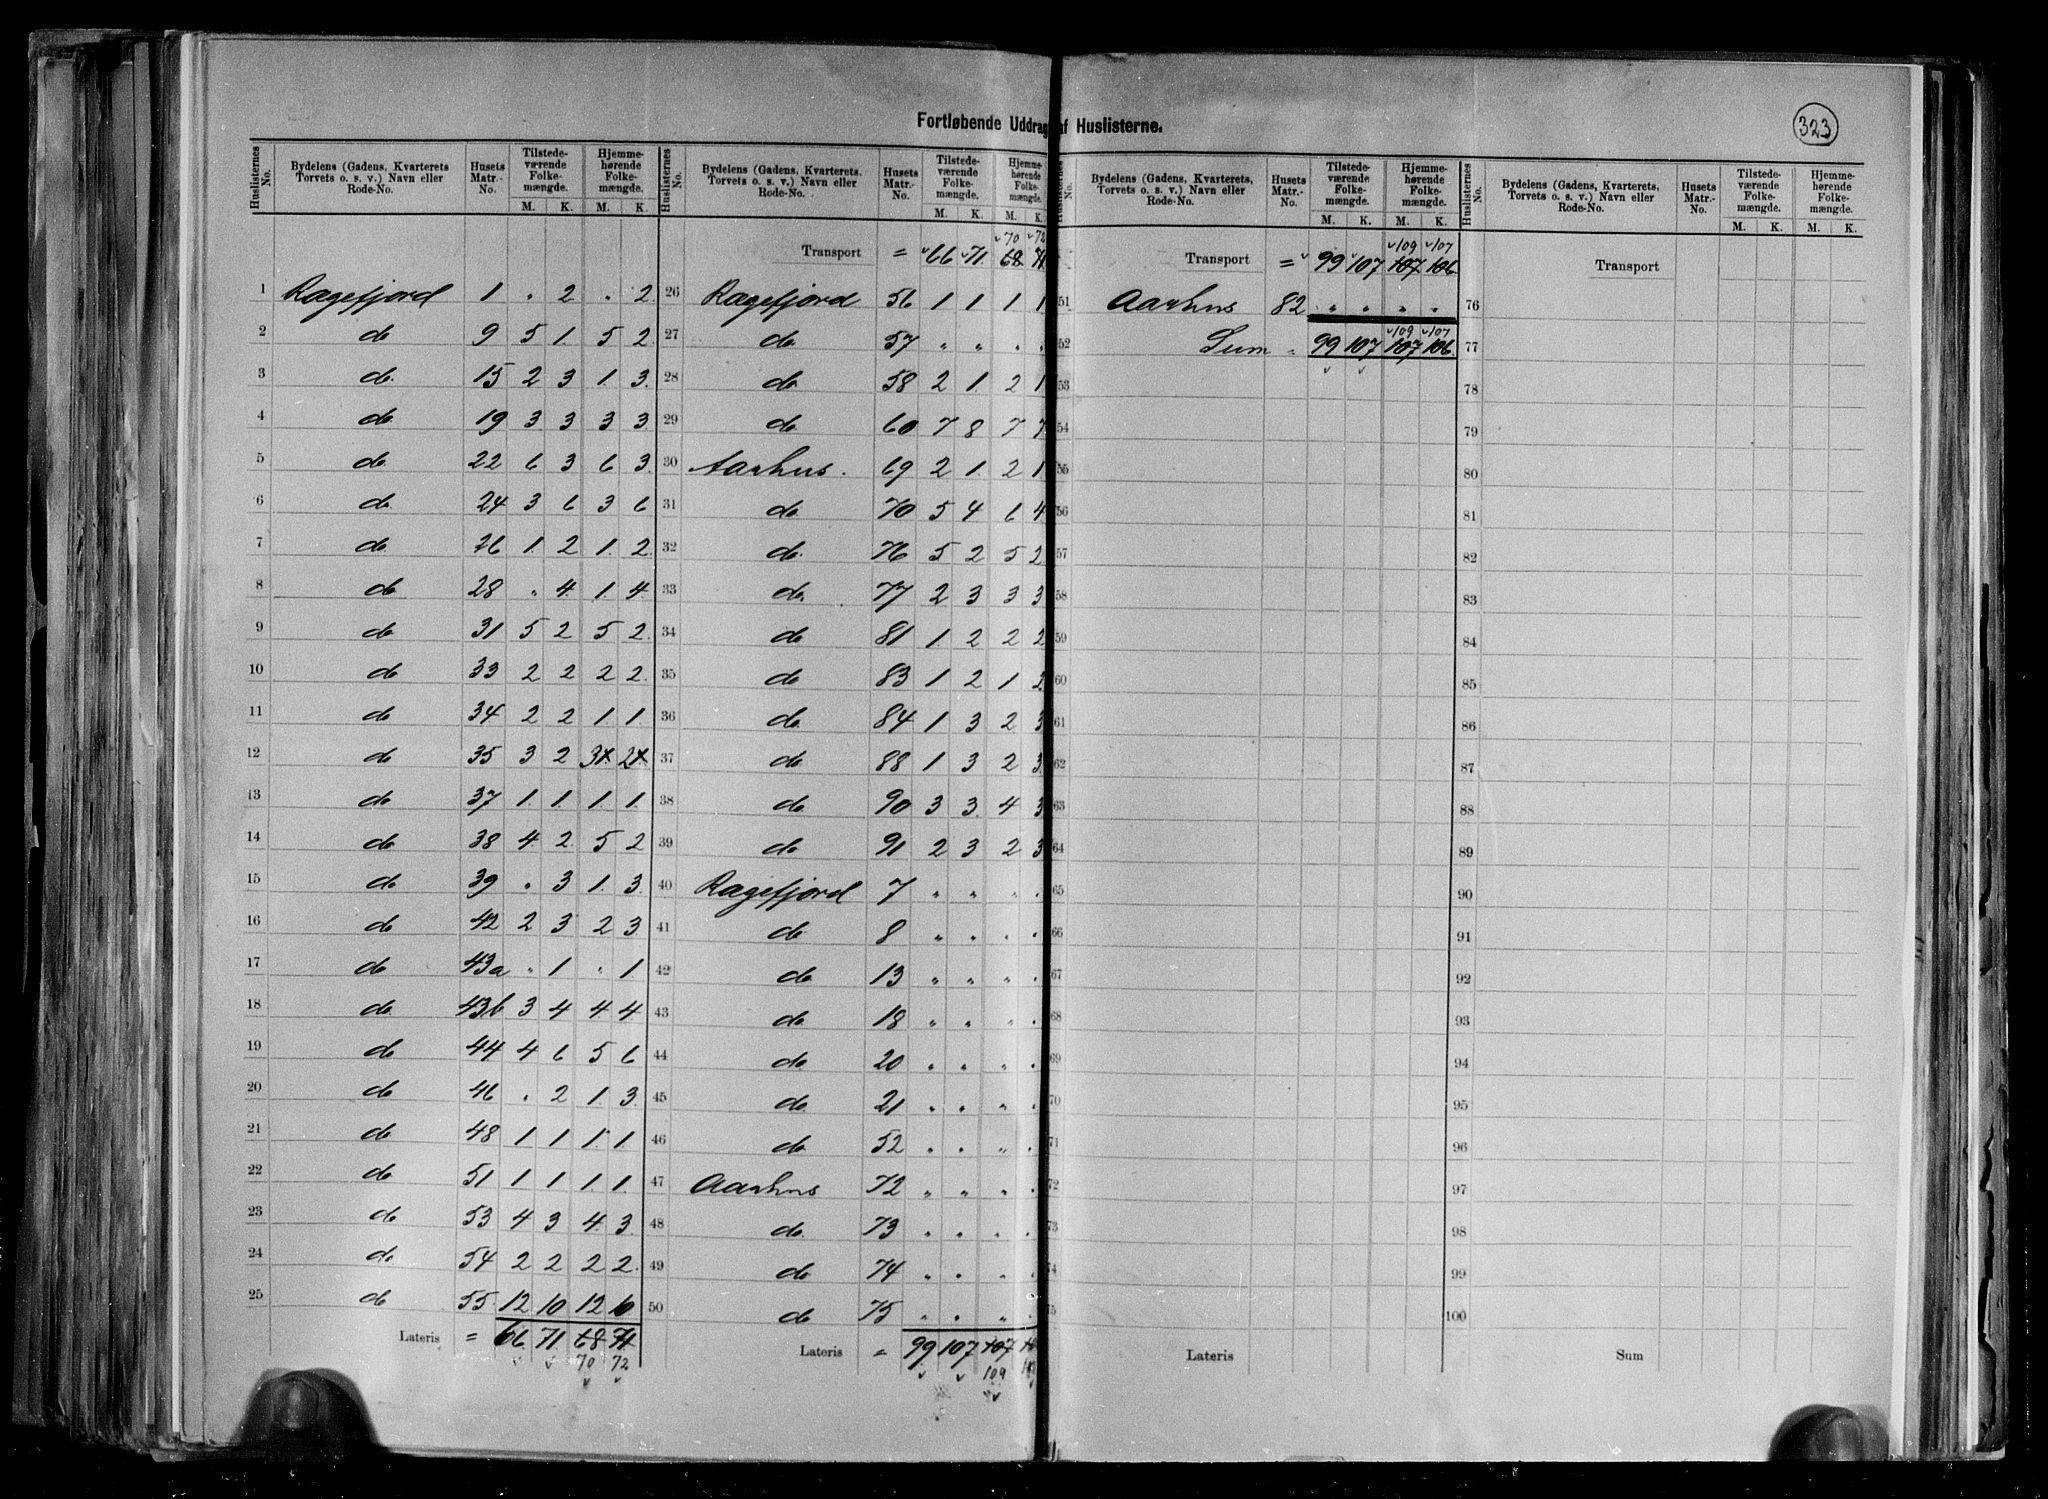 323
Fortløbende Uddrag af Huslisterne.
Huslisternes No. | Bydelens (Gadens, Kvarterets Torvets o. s. v.) Navn eller Rode-No. | Husets Matr.-No. | Tilstedeværende Folkemængde. M. K. | Hjemmehørende Folkemængde. M. K.
1 Ragefjord 1 „ 2 „ 2
2 do 9 5 1 5 2
3 do 15 2 3 1 3
4 do 19 3 3 3 3
5 do 22 6 3 6 3
6 do 24 3 6 3 6
7 do 26 1 2 1 2
8 do 28 „ 4 1 4
9 do 31 5 2 5 2
10 do 33 2 2 2 2
11 do 34 2 2 1 1
12 do 35 3 2 3 2
13 do 37 1 1 1 1
14 do 38 4 2 5 2
15 do 39 „ 3 1 3
16 do 42 2 3 2 3
17 do 43a „ 1 „ 1
18 do 43b 3 4 4 4
19 do 44 4 6 5 6
20 do 46 „ 2 1 3
21 do 48 1 1 1 1
22 do 51 1 1 1 1
23 do 53 4 3 4 3
24 do 54 2 2 2 2
25 do 55 12 10 12 10
Lateris = 66 71 68 71
70 72
Huslisternes No. | Bydelens (Gadens, Kvarterets, Torvets o. s. v.) Navn eller Rode-No. | Husets Matr.-No. | Tilstedeværende Folkemængde. M. K. | Hjemmehørende Folkemængde. M. K.
70 72
Transport = 66 71 68 71
26 Ragefjord 56 1 1 1 1
27 do 57 „ „ „ „
28 do 58 2 1 2 1
29 do 60 7 8 7 7
30 Aarhus. 69 2 1 2 1
31 do 70 5 4 6 4
32 do 76 5 2 5 2
33 do 77 2 3 3 3
34 do 81 1 2 2 2
35 do 83 1 2 1 2
36 do 84 1 3 2 3
37 do 88 1 3 2 3
38 do 90 3 3 4 3
39 do 91 2 3 2 3
40 Ragefjord 7 „ „ „ „
41 do 8 „ „ „ „
42 do 13 „ „ „ „
43 do 18 „ „ „ „
44 do 20 „ „ „ „
45 do 21 „ „ „ „
46 do 52 „ „ „ „
47 Aarhus 72 „ „ „ „
48 do 73 „ „ „ „
49 do 74 „ „ „ „
50 do 75 „ „ „ „
Lateris = 99 107 107
109
Huslisternes No. | Bydelens (Gadens, Kvarterets, Torvets o. s. v.) Navn eller Rode-No. | Husets Matr.-No. | Tilstedeværende Folkemængde. M. K. | Hjemmehørende Folkemængde. M. K.
109 107
Transport = 99 107 107 106
51 Aarhus 82 „ „ „ „
109 107
52 Sum „ 99 107 107 106
53
54
55
56
57
58
59
60
61
62
63
64
65
66
67
68
69
70
71
72
73
74
75
Lateris
Huslisternes No. | Bydelens (Gadens, Kvarterets, Torvets o. s. v.) Navn eller Rode-No. | Husets Matr.-No. | Tilstedeværende Folkemængde. M. K. | Hjemmehørende Folkemængde. M. K.
Transport
76
77
78
79
80
81
82
83
84
85
86
87
88
89
90
91
92
93
94
95
96
97
98
99
100
Sum